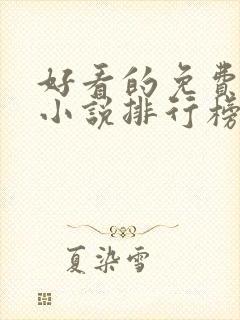 好看的免費
小說排行榜
夏染雪